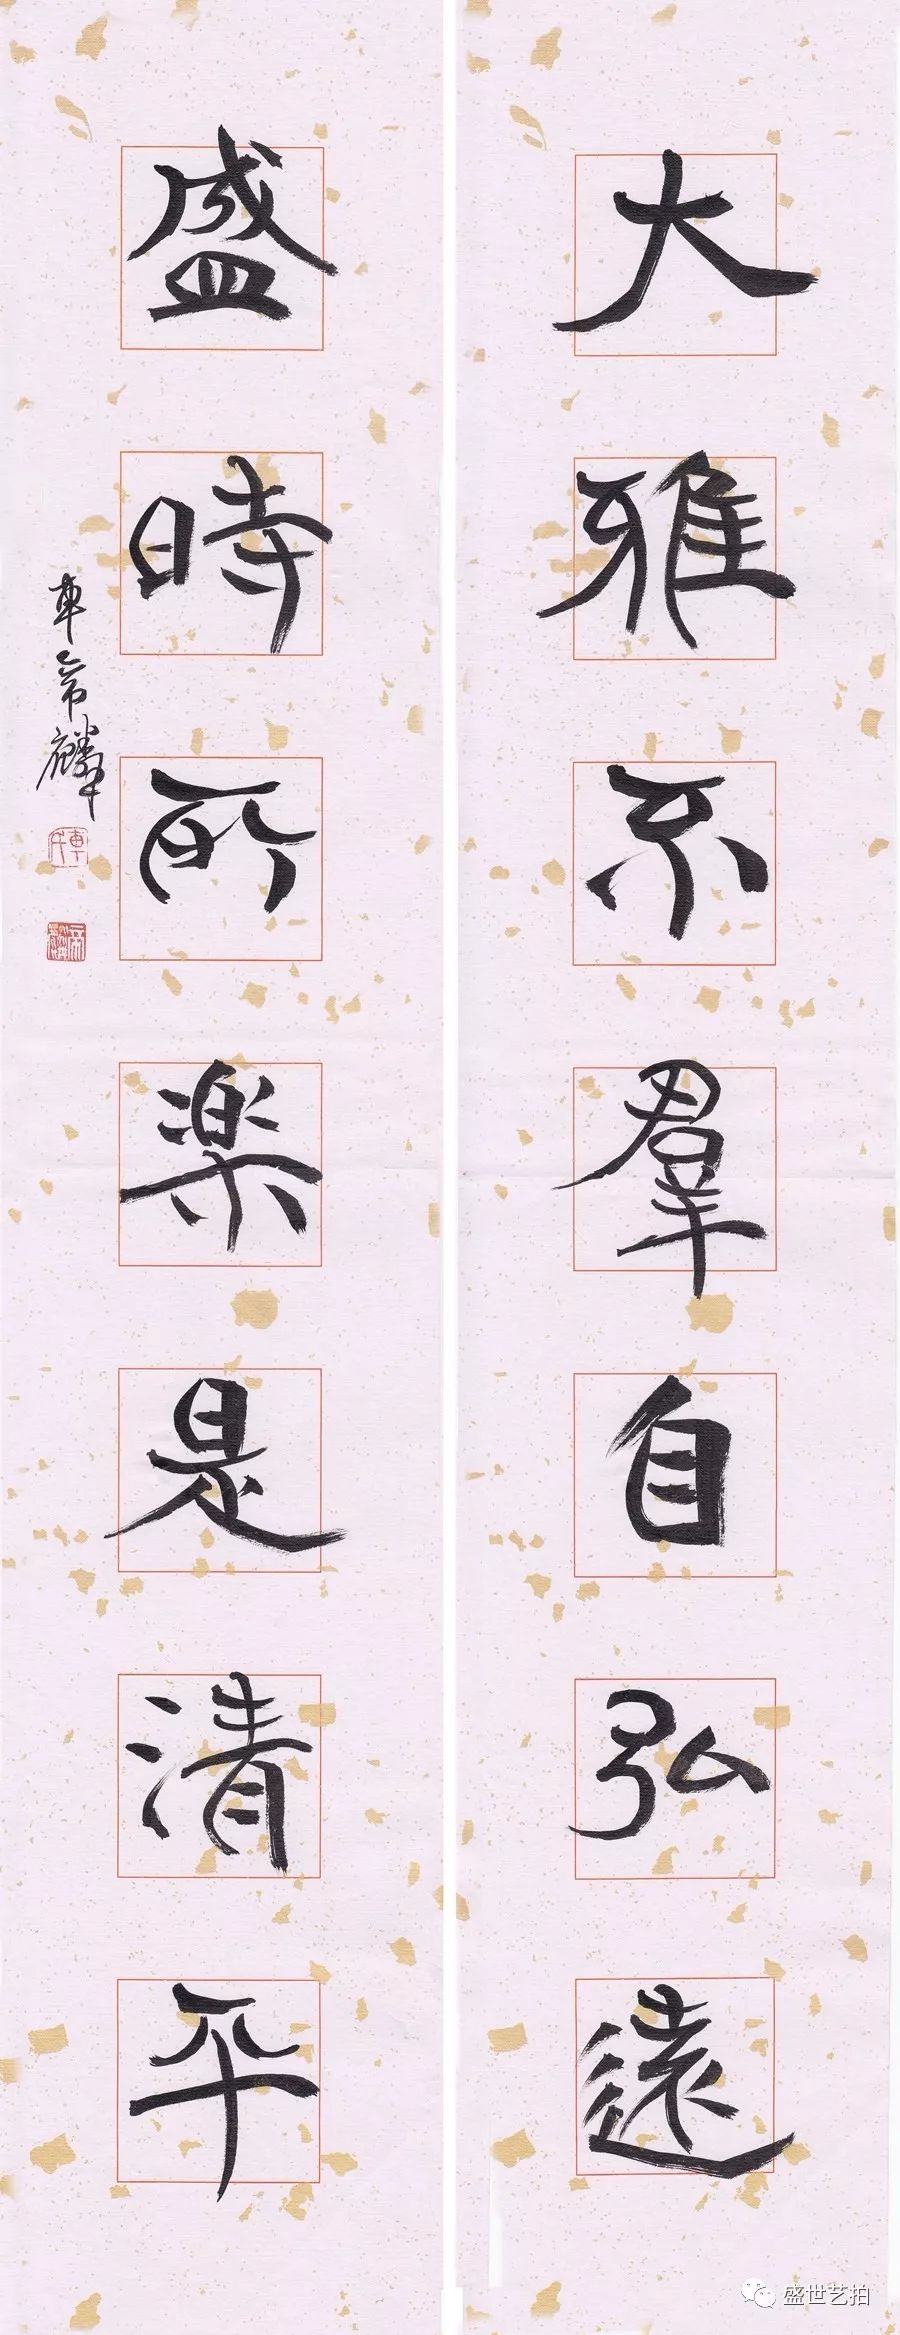 大雅不羣自弘遠
盛時所楽是清平
車常麟
盛世艺拍